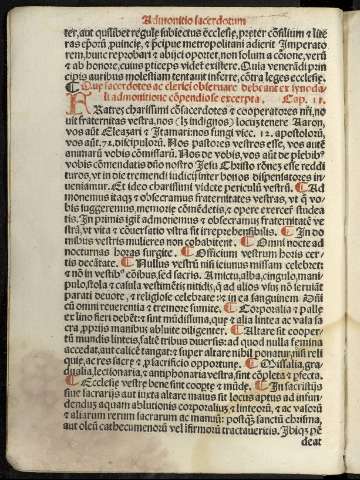 Admonitio sacerdotum
ter, aut quslibet regule subiectus ecclesie, preter cōsilium & litte
ras eporū ꝓuincie, & ꝓcipue metropolitani adierit Imperato
rem, hunc reprobari & abijci oportet, non solum a cōione, verū
& ab honore, cuius pticeps videt existere. Quia venerādi prin
cipis auribus molestiam tentauit inferre, cōtra leges ecclesie.
¶ Que sacerdotes ac clerici obseruare debeant ex synoda
li admonitione cōpendiose excerpta. Cap. 15.
FRatres charissimi cōsacerdotes & cooperatores nr̄i, no
uit fraternitas vestra, nos (ls indignos) locū tenere Aaron,
vos aūt Eleazari & Itamari: nos fungi vice. 12. apostolorū,
vos aūt. 72. discipulorū. Nos pastores vestros esse, vos autē
animarū vobis cōmissarū. Nos de vobis, vos aūt de plebibꝰ
vobis cōmendatis dn̄o nostro Jesu Christo rōnē esse reddi
turos, vt in die tremendi iudicij inter bonos dispensatores in
ueniamur. Et ideo charissimi videte periculū vestrū. ¶ Ad
monemus itaqꝫ & obsecramus fraternitates vestras, vt q̄ vo
bis suggeremus, memorie cōmēdetis, & opere exercere studea
tis. In primis igit̄ admonemus & obsecramus fraternitatē ve
strā, vt vita & cōuersatio vr̄a sit irreprehensibilis. ¶ In do
mibus vestris mulieres non cohabitent. ¶ Omni nocte ad
nocturnas horas surgite. ¶ Officium vestrum horis cer
tis decātate. ¶ Nullus vestrū nisi ieiunus missam celebret
& nō in vestibꝰ cōibus, sed sacris. Amictu, alba, cingulo, mani
pulo, stola & casula vestimētis nitidis, q̄ ad alios vsus nō seruiāt
parati deuote, & religiose celebrate: & in ea sanguinem Dn̄i
cū omni reuerentia & tremore sumite. ¶ Corporalia & palle
ex lino fieri debēt: & sint mūdissima, que & alia lintea ac vasa sa
cra, ꝓprijs manibus abluite diligenter. ¶ Altare sit cooper
tū mundis linteis, saltē tribus diuersis: ad quod nulla femina
accedat, aut calicē tangat: & super altare nihil ponatur, nisi reli
quie, ac res sacre & ꝓ sacrificio opportune. ¶ Missalia, gra
dualia, lectionaria, & antiphonaria vestra, sint cōpleta & ꝑfecta.
¶ Ecclesie vestre bene sint coopte & mūde. ¶ In sacristijs
siue sacrarijs aut iuxta altare maius sit locus aptus ad infun
dendum aquam ablutionis corporaliū & linteorū, & ac valorū
& aliarum rerum sacrarum ac manuū: postqꝫ sanctū chrisma,
aut oleū cathecumenorū vel ifirmorū tractaueritis. Ibiqꝫ pē
deat